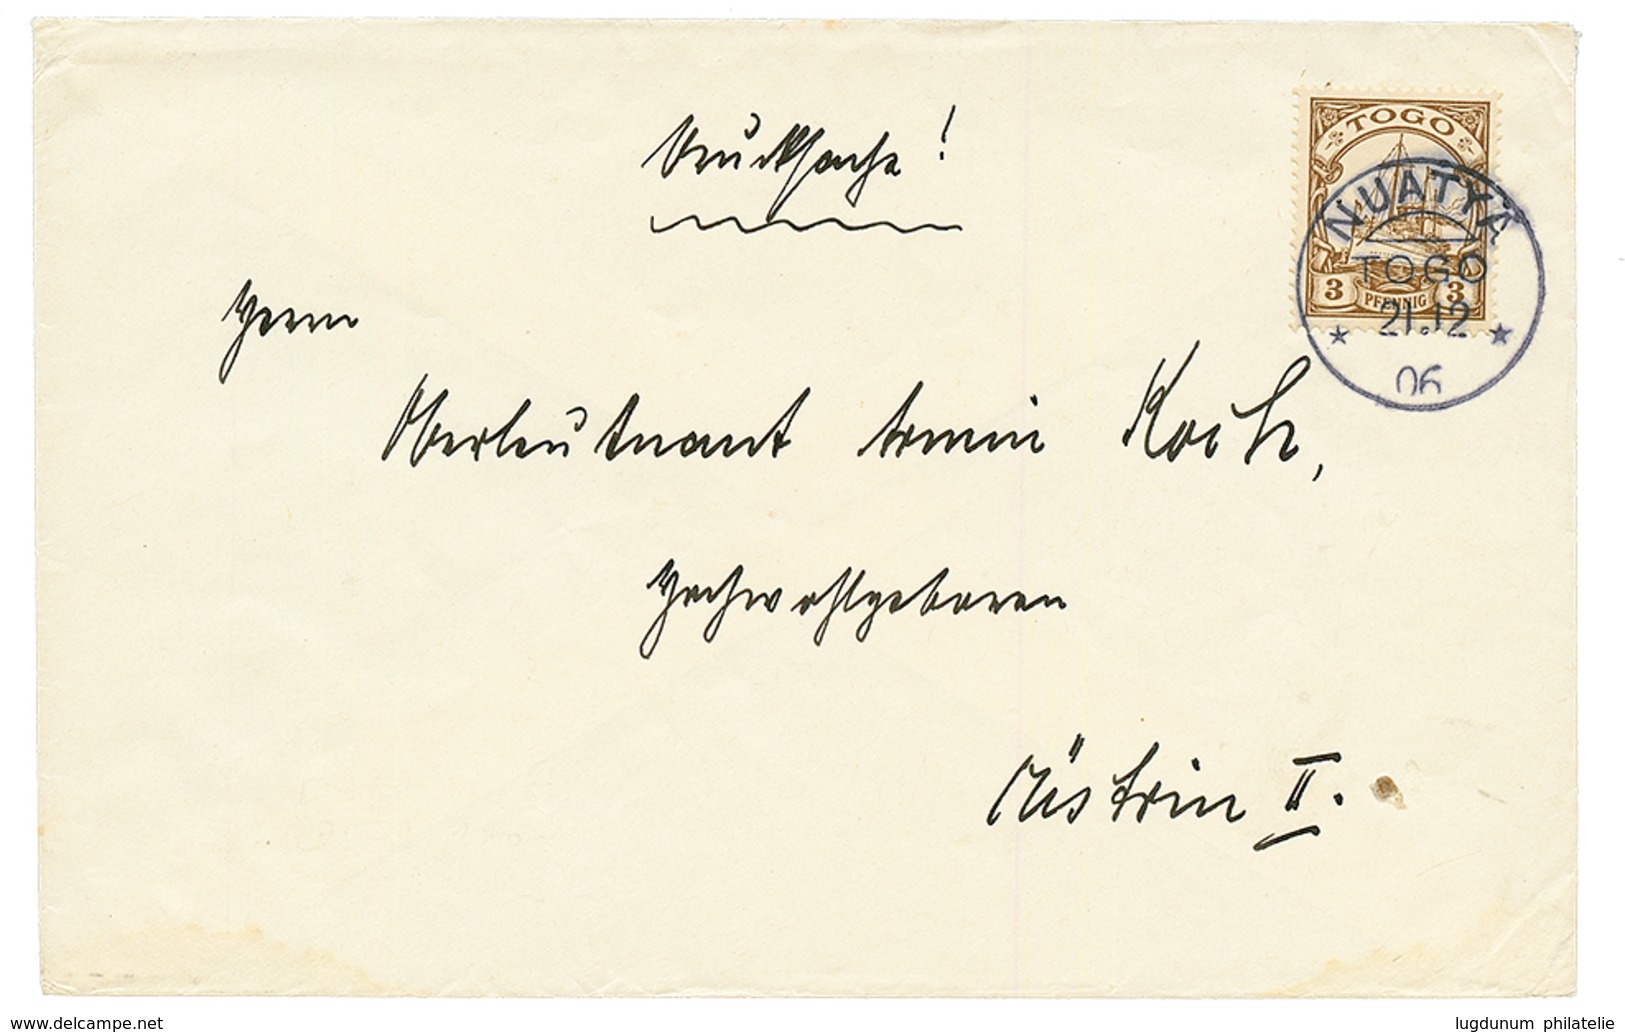 Drucksache!
TOGO
NUATYÄ
TOGO
3 PFENNIG 3
* 21.12 *
06
Herrn
Oberleutnant Armin Koch,
Hochwohlgeboren
Cüstrin II.
www.delcampe.net
lugdunum philatelie